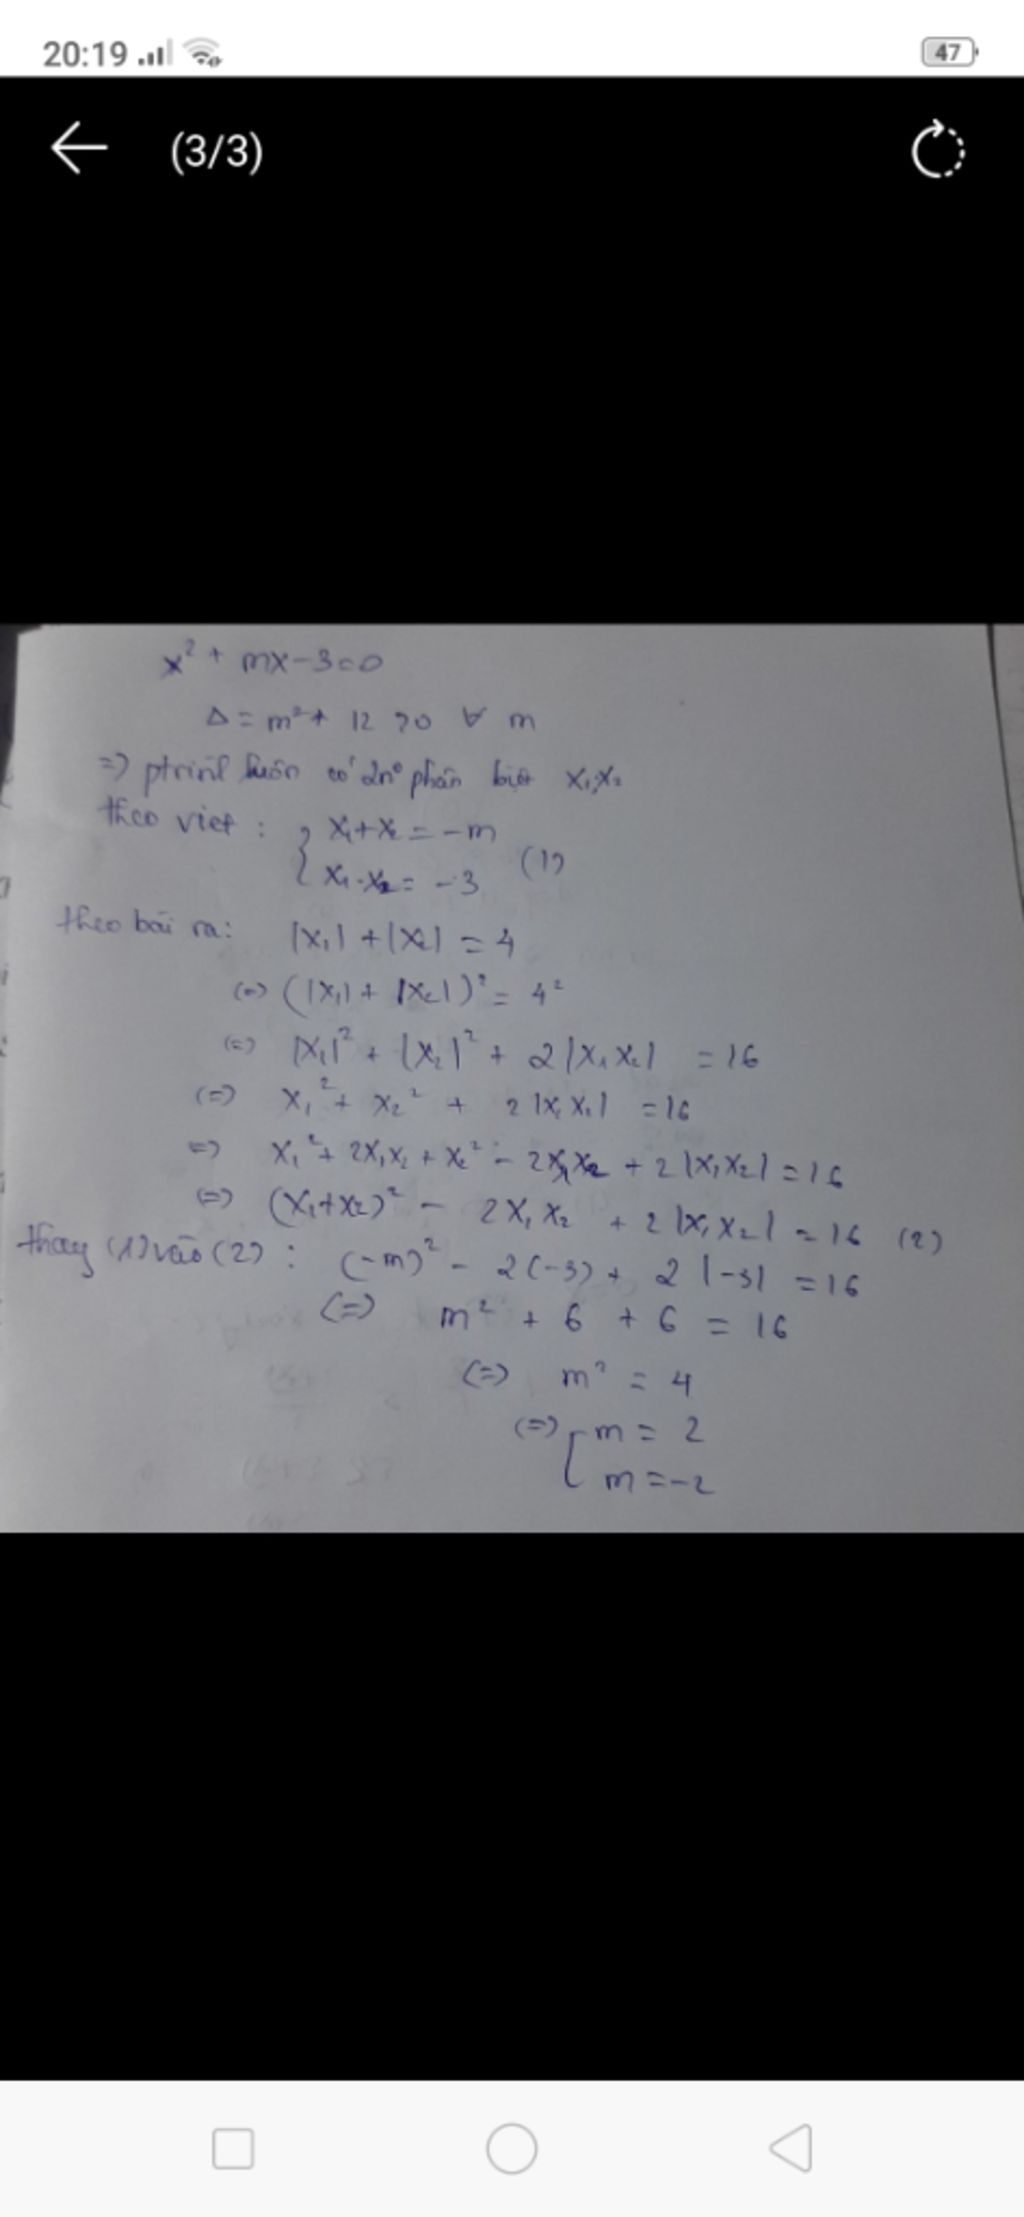 20:19
47
(3/3)
x² + mx - 3 = 0
Δ = m² + 12 > 0 ∀ m
=) ptrình luôn có 2n⁰ phân biệt x₁; x₂
theo viet : { x₁ + x₂ = -m
x₁ . x₂ = -3 (1)
theo bài ra: |x₁| + |x₂| = 4
(=) (|x₁| + |x₂|)² = 4²
(=) |x₁|² + |x₂|² + 2|x₁ x₂| = 16
(=) x₁² + x₂² + 2|x₁ x₂| = 16
=) x₁² + 2x₁x₂ + x₂² - 2x₁x₂ + 2|x₁x₂| = 16
(=) (x₁+x₂)² - 2x₁x₂ + 2|x₁x₂| = 16 (2)
thay (1) vào (2) : (-m)² - 2(-3) + 2|-3| = 16
(=) m² + 6 + 6 = 16
(=) m² = 4
(=) [ m = 2
m = -2